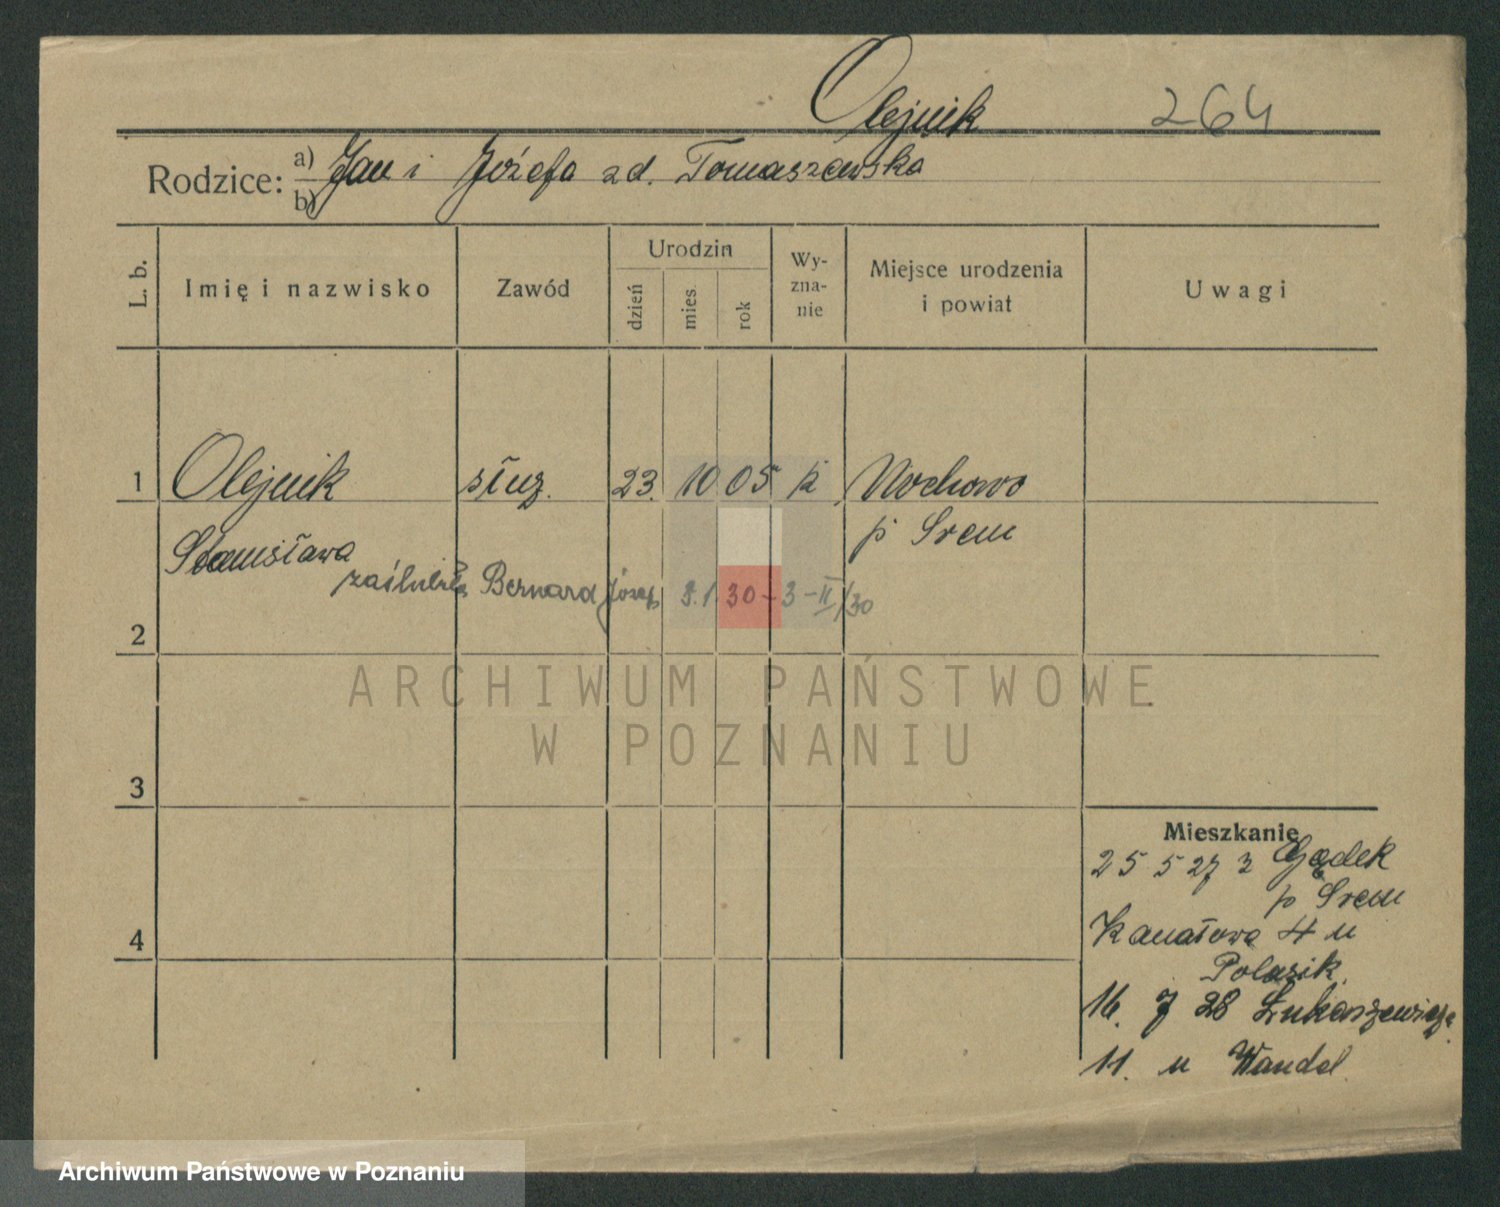 Olejnik 264
Rodzice: a) Jan i Józefa zd. Tomaszewska
b)
L. b. Imię i nazwisko Zawód Urodzin dzień mies. rok Wy-zna-nie Miejsce urodzenia i powiat Uwagi
1 Olejnik służ. 23. 10 05 k Nochowo
Stanisława p Srem
zaślubiła Bernard Józef 3.1.30 - 3-II/30
2
3
4
Mieszkanie
25 5 27 z Gądek
p Srem
Kanałowa 4 u
Polasik
16. 7 28 Łukaszewicza
11. u Wandel
ARCHIWUM PAŃSTWOWE
W POZNANIU
Archiwum Państwowe w Poznaniu